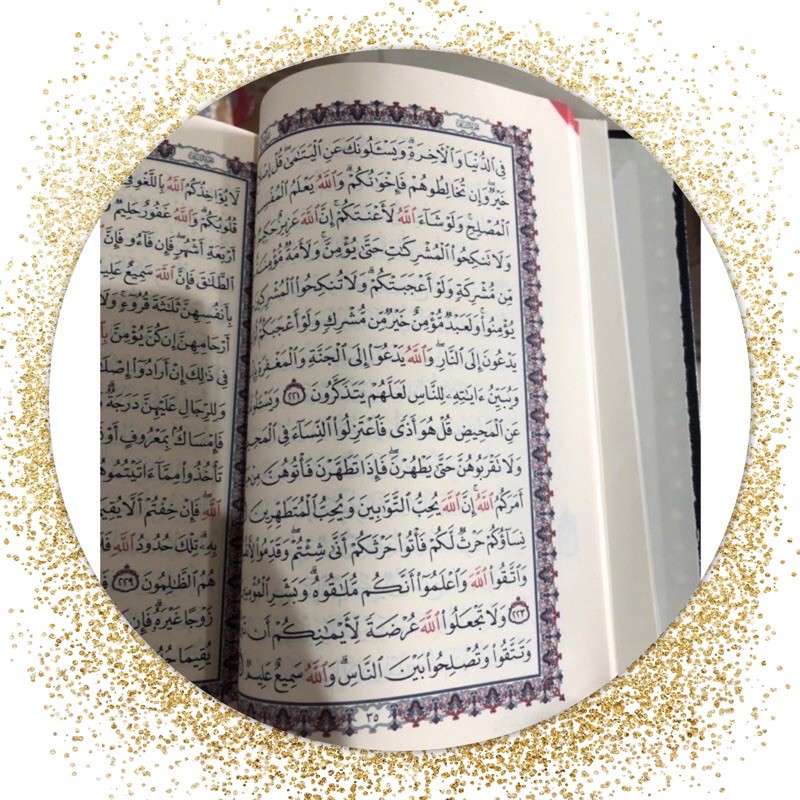 فِى ٱلدُّنْيَا وَٱلْأَخِرَةِۗ وَيَسْـَٔلُونَكَ عَنِ ٱلْيَتَـٰمَىٰۖ قُلْ
خَيْرٌۖ وَإِن تُخَالِطُوهُمْ فَإِخْوَٰنُكُمْۚ وَٱللَّهُ يَعْلَمُ
ٱلْمُصْلِحِۚ وَلَوْ شَآءَ ٱللَّهُ لَأَعْنَتَكُمْۚ إِنَّ ٱللَّهَ عَزِيزٌ حَكِيمٌ
وَلَا تَنكِحُوا۟ ٱلْمُشْرِكَـٰتِ حَتَّىٰ يُؤْمِنَّۚ وَلَأَمَةٌ
مِّن مُّشْرِكَةٍ وَلَوْ أَعْجَبَتْكُمْۗ وَلَا تُنكِحُوا۟ ٱلْمُشْرِكِينَ
يُؤْمِنُوا۟ۚ وَلَعَبْدٌ مُّؤْمِنٌ خَيْرٌ مِّن مُّشْرِكٍ وَلَوْ أَعْجَبَكُمْۗ
يَدْعُونَ إِلَى ٱلنَّارِۖ وَٱللَّهُ يَدْعُوٓا۟ إِلَى ٱلْجَنَّةِ وَٱلْمَغْفِرَةِ
وَيُبَيِّنُ ءَايَـٰتِهِۦ لِلنَّاسِ لَعَلَّهُمْ يَتَذَكَّرُونَ ٢٢١
عَنِ ٱلْمَحِيضِۖ قُلْ هُوَ أَذًى فَٱعْتَزِلُوا۟ ٱلنِّسَآءَ فِى
وَلَا تَقْرَبُوهُنَّ حَتَّىٰ يَطْهُرْنَۖ فَإِذَا تَطَهَّرْنَ فَأْتُوهُنَّ مِنْ
أَمَرَكُمُ ٱللَّهُۚ إِنَّ ٱللَّهَ يُحِبُّ ٱلتَّوَّٰبِينَ وَيُحِبُّ ٱلْمُتَطَهِّرِينَ
نِسَآؤُكُمْ حَرْثٌ لَّكُمْ فَأْتُوا۟ حَرْثَكُمْ أَنَّىٰ شِئْتُمْۖ وَقَدِّمُوا۟
وَٱتَّقُوا۟ ٱللَّهَ وَٱعْلَمُوٓا۟ أَنَّكُم مُّلَـٰقُوهُۗ وَبَشِّرِ
٢٢٣ وَلَا تَجْعَلُوا۟ ٱللَّهَ عُرْضَةً لِّأَيْمَـٰنِكُمْ أَن
وَتَتَّقُوا۟ وَتُصْلِحُوا۟ بَيْنَ ٱلنَّاسِۗ وَٱللَّهُ سَمِيعٌ عَلِيمٌ
٣٥
لَّا يُؤَاخِذُكُمُ ٱللَّهُ بِٱللَّغْوِ
قُلُوبُكُمْۗ وَٱللَّهُ غَفُورٌ حَلِيمٌ
أَرْبَعَةِ أَشْهُرٍۖ فَإِن فَآءُو فَإِنَّ
ٱلطَّلَـٰقَ فَإِنَّ ٱللَّهَ سَمِيعٌ
بِأَنفُسِهِنَّ ثَلَـٰثَةَ قُرُوٓءٍۚ وَلَا
أَرْحَامِهِنَّ إِن كُنَّ يُؤْمِنَّ
فِى ذَٰلِكَ إِنْ أَرَادُوٓا۟
وَلِلرِّجَالِ عَلَيْهِنَّ دَرَجَةٌۗ
فَإِمْسَاكٌۢ بِمَعْرُوفٍ
تَأْخُذُوا۟ مِمَّآ ءَاتَيْتُمُوهُنَّ
ٱللَّهِۖ فَإِنْ خِفْتُمْ أَلَّا
بِهِۦۗ تِلْكَ حُدُودُ ٱللَّهِ
هُمُ ٱلظَّـٰلِمُونَ ٢٢٩
زَوْجًا غَيْرَهُۥۗ فَإِن
يُقِيمَا